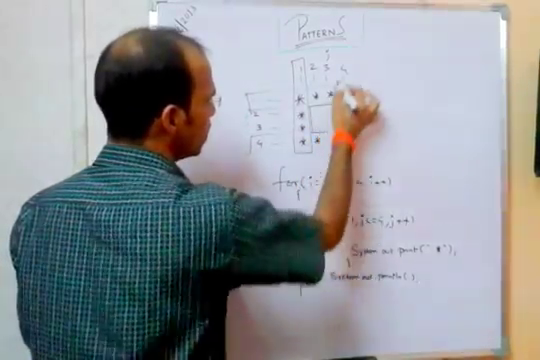 PATTERNS
j
1 2 3 4
* * *
2 *
3 *
4 * *
for(i= i++)
j<=4; j++)
System.out.print(" *");
}
System.out.println( );